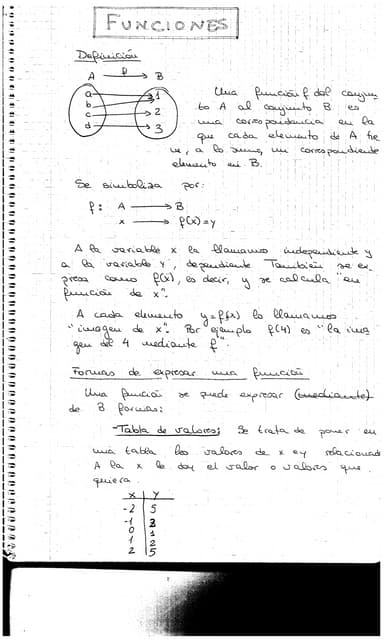 FUNCIONES
Definición
A f B
a 1
b
c 2
d 3
Una función f del conjun
to A al conjunto B es
una correspondencia en la
que cada elemento de A tie
ne, a lo sumo, un correspondiente
elemento en B.
Se simboliza por:
f: A → B
x → f(x)=y
A la variable x la llamamos independiente y
a la variable y, dependiente También se ex
presa como f(x), es decir, y se calcula "en
función de x".
A cada elemento y=f(x) lo llamamos
"imagen de x". Por ejemplo f(4) es "la ima
gen del 4 mediante f".
Formas de expresar una función
Una función se puede expresar (mediante)
de 3 formas:
-Tabla de valores: Se trata de poner en
una tabla los valores de x e y relacionada
A la x le doy el valor o valores que
quiera.
x y
-2 5
-1 2
0 1
1 2
2 5